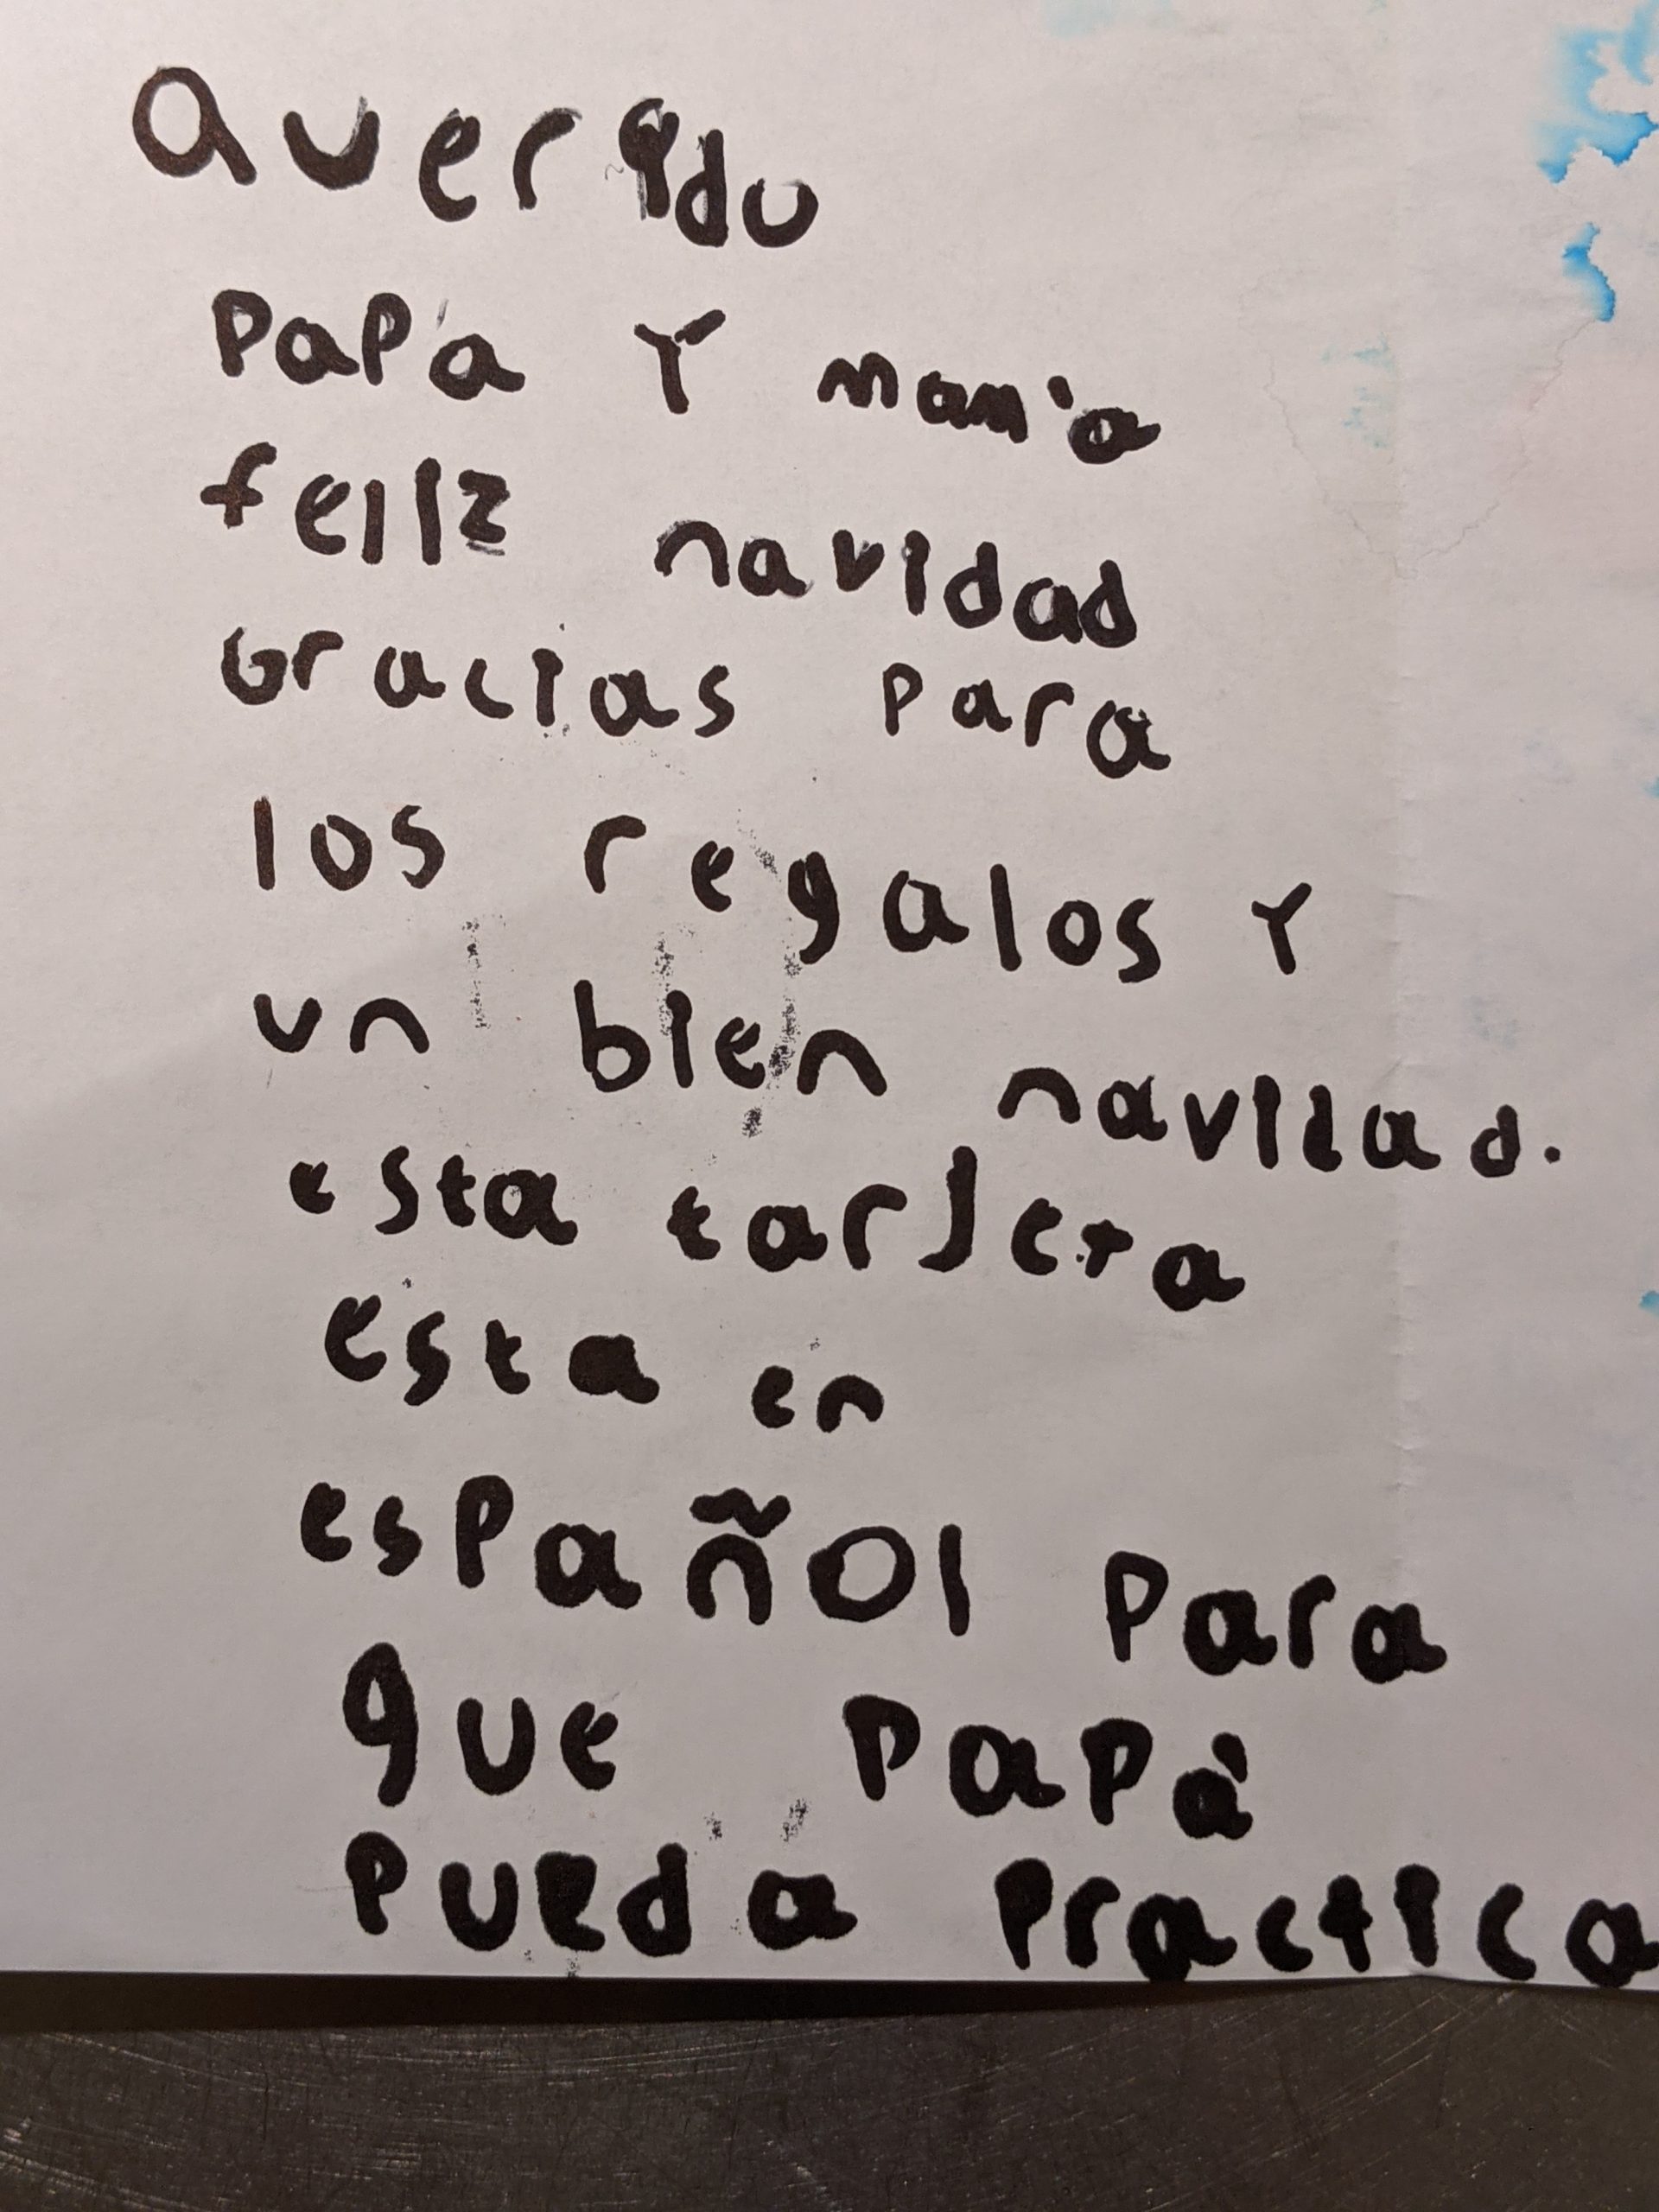 Querido
Papá Y mamá
feliz navidad
Gracias para
los regalos Y
un bien navidad.
esta tarjeta
esta en
español para
que Papá
Pueda Practica